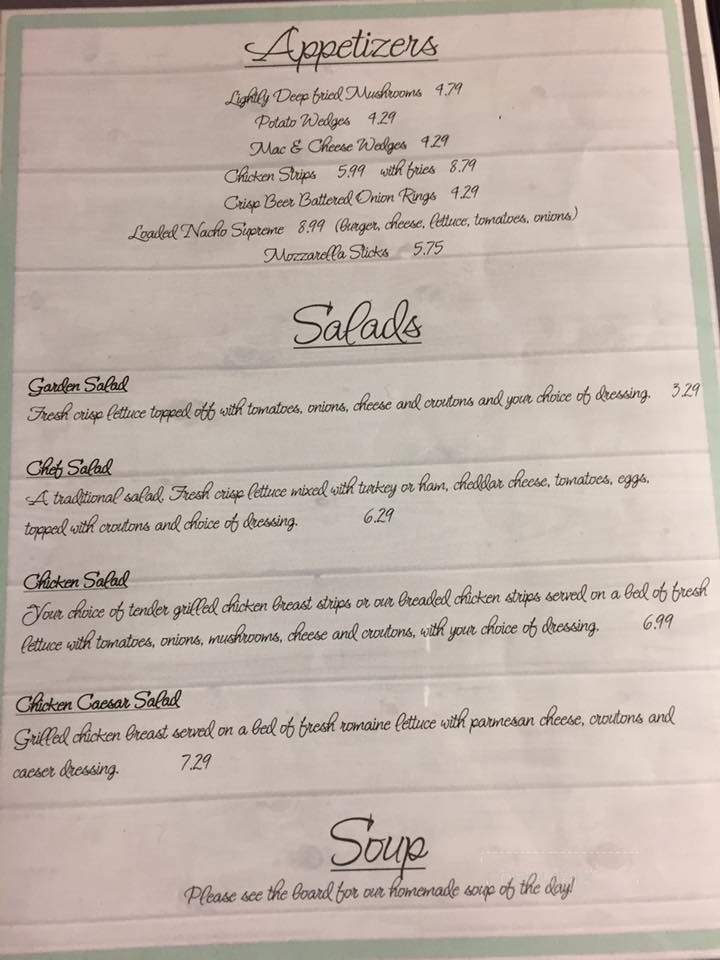 Appetizers
Lightly Deep fried Mushrooms 4.79
Potato Wedges 4.29
Mac & Cheese Wedges 4.29
Chicken Strips 5.99 with fries 8.79
Crisp Beer Battered Onion Rings 4.29
Loaded Nacho Supreme 8.99 (burger, cheese, lettuce, tomatoes, onions)
Mozzarella Sticks 5.75
Salads
Garden Salad
Fresh crisp lettuce topped off with tomatoes, onions, cheese and croutons and your choice of dressing. 3.29
Chef Salad
A traditional salad, Fresh crisp lettuce mixed with turkey or ham, cheddar cheese, tomatoes, eggs,
topped with croutons and choice of dressing. 6.29
Chicken Salad
Your choice of tender grilled chicken breast strips or our breaded chicken strips served on a bed of fresh
lettuce with tomatoes, onions, mushrooms, cheese and croutons, with your choice of dressing. 6.99
Chicken Caesar Salad
Grilled chicken breast served on a bed of fresh romaine lettuce with parmesan cheese, croutons and
caeser dressing. 7.29
Soup
Please see the board for our homemade soup of the day!